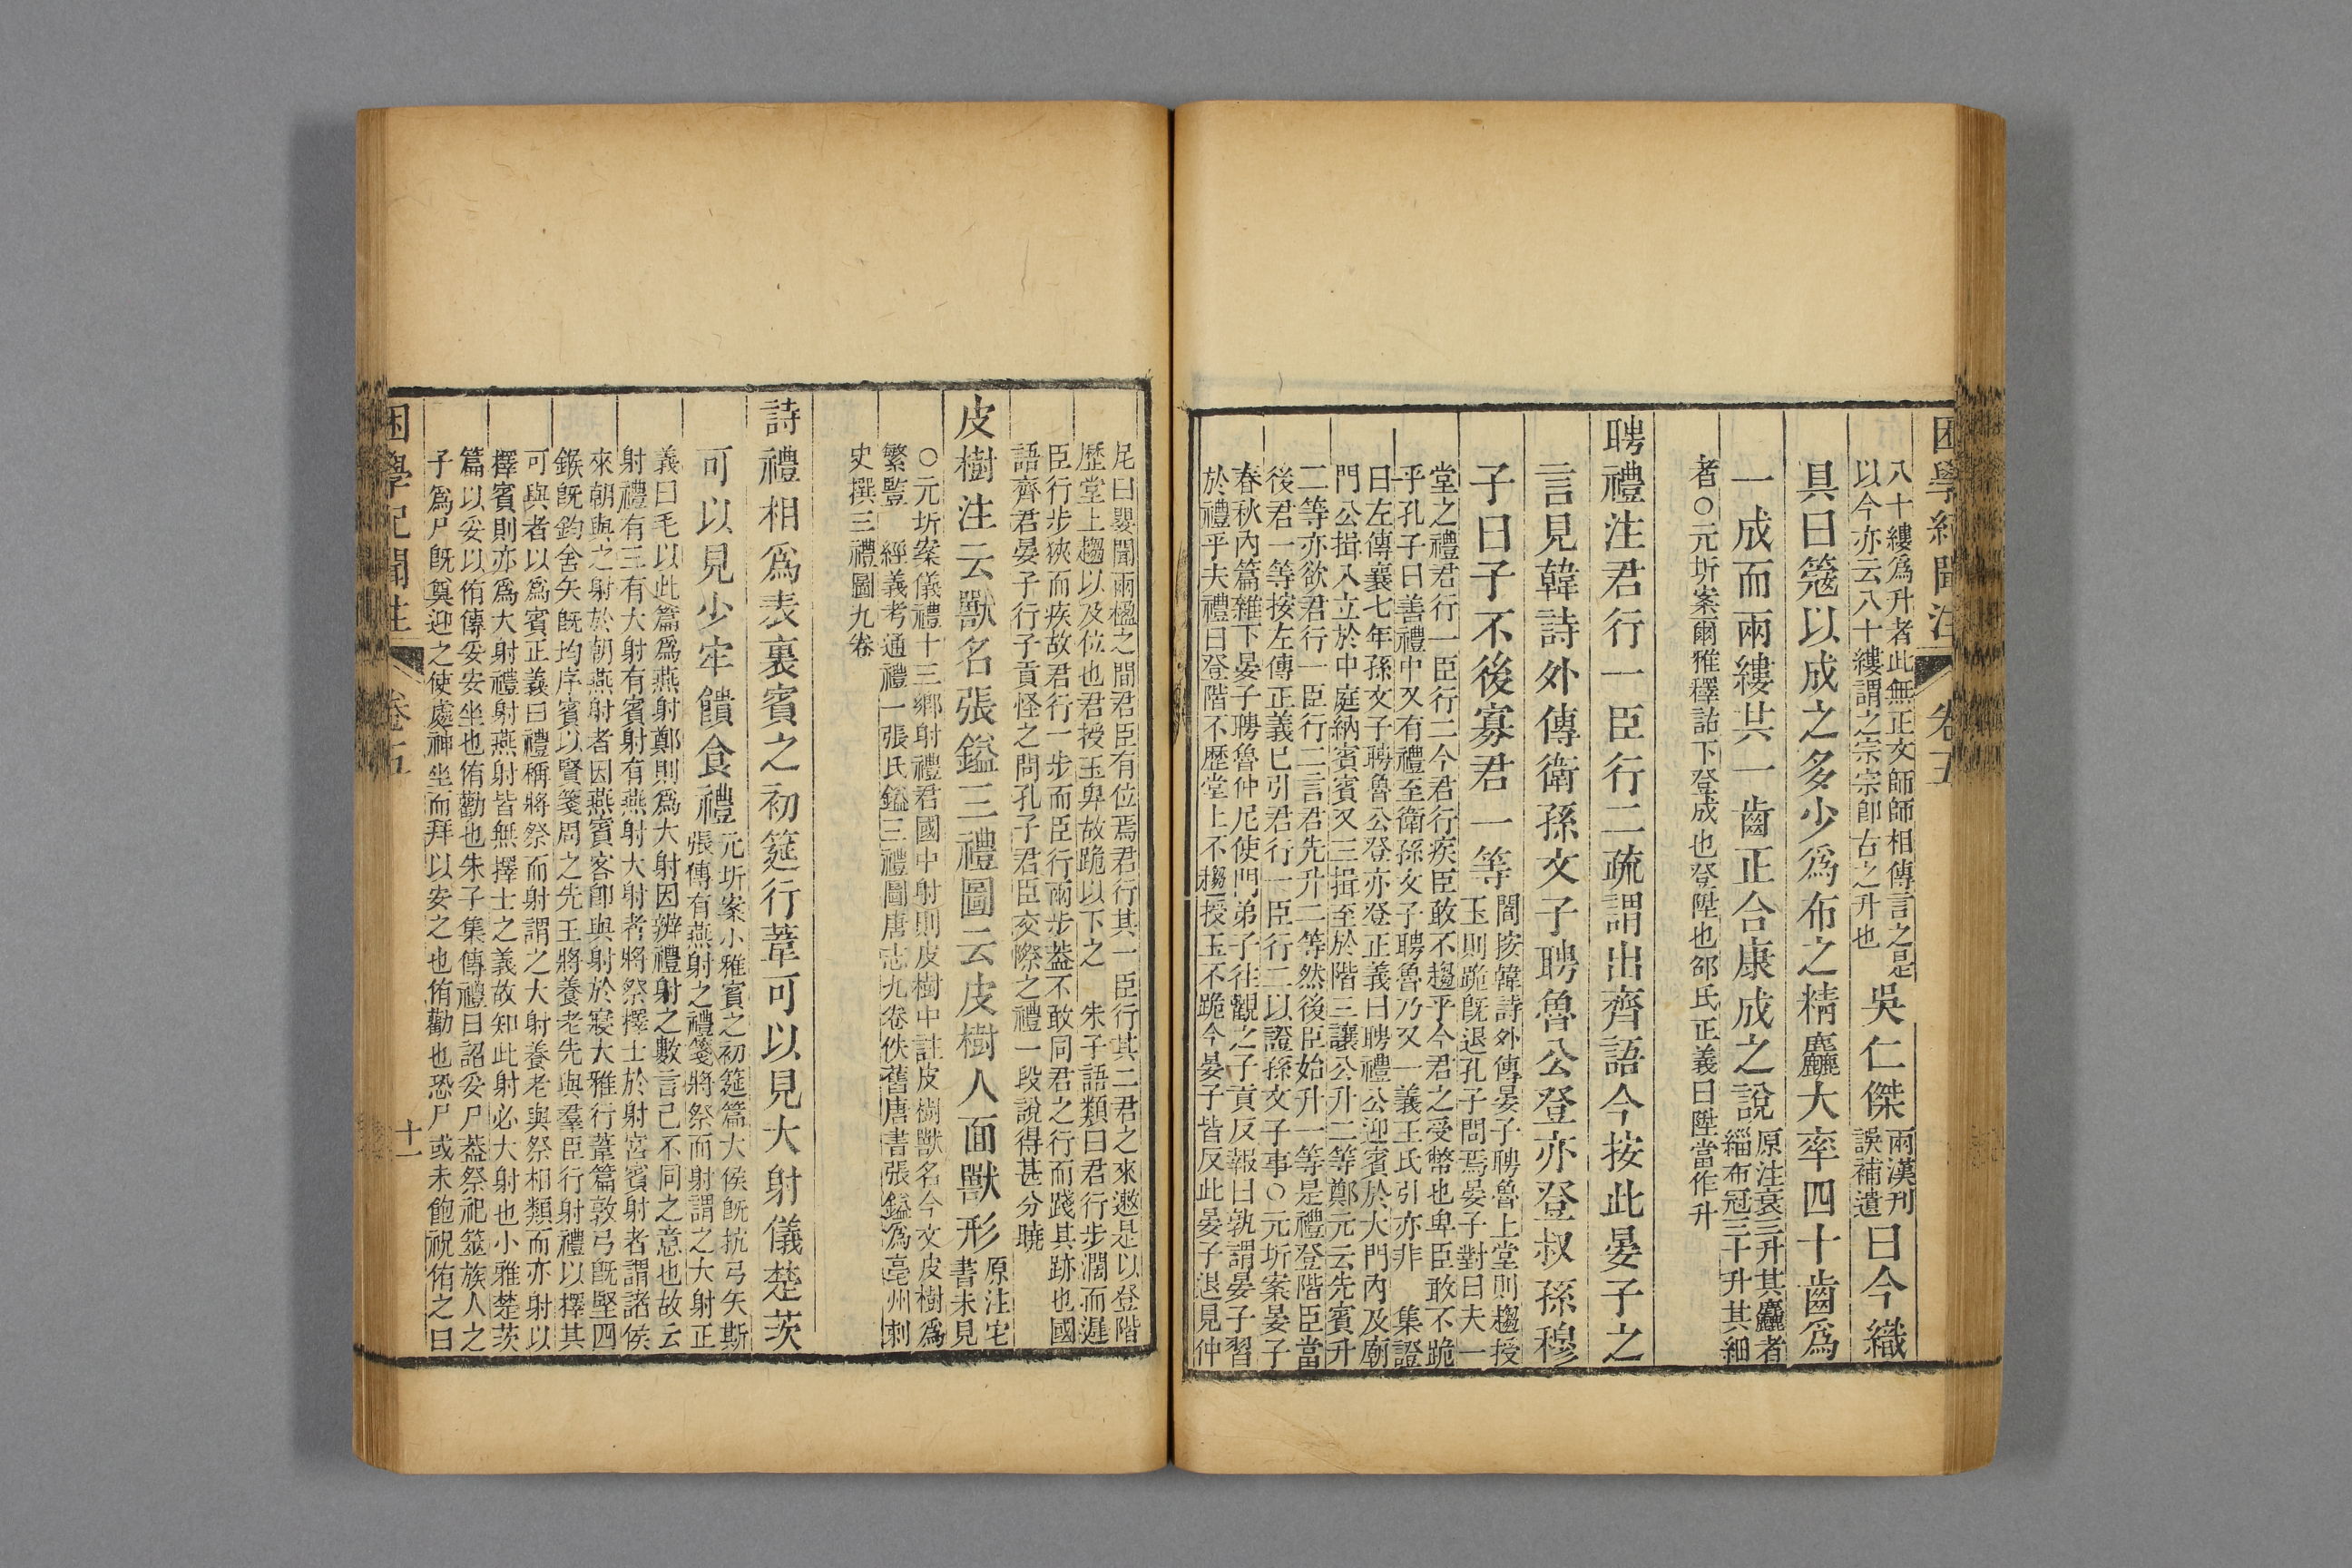 困學紀聞注 卷五
八十縷爲升者此無正文師師相傳言之是
以今亦云八十縷謂之宗宗卽古之升也
吳仁傑
兩漢刊
誤補遺
曰今織
具曰簆以成之多少爲布之精麤大率四十齒爲
一成而兩縷共一齒正合康成之說
原注衰三升其麤者
緇布冠三十升其細
者○元圻案爾雅釋詁下登成也登陞也邵氏正義曰陞當作升
聘禮注君行一臣行二疏謂出齊語今按此晏子之
言見韓詩外傳衛孫文子聘魯公登亦登叔孫穆
子曰子不後寡君一等
閻按韓詩外傳晏子聘魯上堂則趨授
玉則跪旣退孔子問焉晏子對曰夫一
堂之禮君行一臣行二今君行疾臣敢不趨乎今君之受幣也卑臣敢不跪
乎孔子曰善禮中又有禮至衛孫文子聘魯乃又一義王氏引亦非 集證
曰左傳襄七年孫文子聘魯公登亦登正義曰聘禮公迎賓於大門內及廟
門公揖入立於中庭納賓賓又三揖至於階三讓公升二等鄭元云先賓升
二等亦欲君行一臣行二言君先升二等然後臣始升一等是禮登階臣當
後君一等按左傳正義已引君行一臣行二以證孫文子事○元圻案晏子
春秋內篇雜下晏子聘魯仲尼使門弟子往觀之子貢反報曰孰謂晏子習
於禮乎夫禮曰登階不歷堂上不趨授玉不跪今晏子皆反此晏子退見仲
尼曰嬰聞兩楹之間君臣有位焉君行其一臣行其二君之來遬是以登階
歷堂上趨以及位也君授玉卑故跪以下之 朱子語類曰君行步濶而遲
臣行步狹而疾故君行一步而臣行兩步葢不敢同君之行而踐其跡也國
語齊君晏子行子貢怪之問孔子君臣交際之禮一段說得甚分曉
皮樹注云獸名張鎰三禮圖云皮樹人面獸形
原注它
書未見
○元圻案儀禮十三鄉射禮君國中射則皮樹中註皮樹獸名今文皮樹爲
繁豎 經義考通禮一張氏鎰三禮圖唐志九卷佚舊唐書張鎰爲亳州刺
史撰三禮圖九卷
詩禮相爲表裏賓之初筵行葦可以見大射儀楚茨
可以見少牢饋食禮
元圻案小雅賓之初筵篇大侯旣抗弓矢斯
張傳有燕射之禮箋將祭而射謂之大射正
義曰毛以此篇爲燕射鄭則爲大射因辨禮射之數言己不同之意也故云
射禮有三有大射有賓射有燕射大射者將祭擇士於射宮賓射者謂諸侯
來朝與之射於朝燕射者因燕賓客卽與射於寢大雅行葦篇敦弓旣堅四
鍭旣鈞舍矢旣均序賓以賢箋周之先王將養老先與羣臣行射禮以擇其
可與者以爲賓正義曰禮稱將祭而射謂之大射養老與祭相類而亦射以
擇賓則亦爲大射禮射燕射皆無擇士之義故知此射必大射也小雅楚茨
篇以妥以侑傳妥安坐也侑勸也朱子集傳禮曰詔妥尸葢祭祀筮族人之
子爲尸旣奠迎之使處神坐而拜以安之也侑勸也恐尸或未飽祝侑之曰
困學紀聞注 卷五 十一